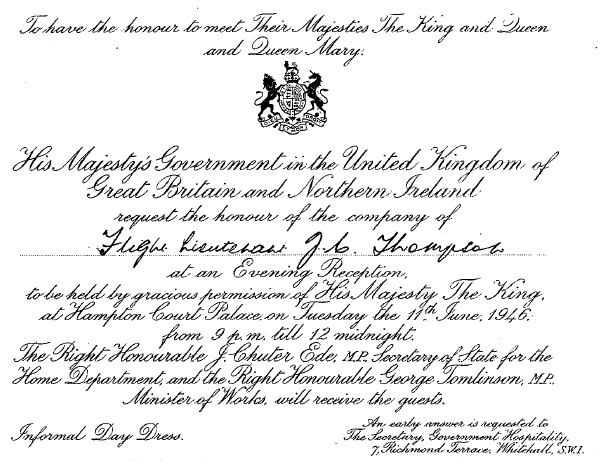 To have the honour to meet Their Majesties The King and Queen
and Queen Mary.
His Majesty's Government in the United Kingdom of
Great Britain and Northern Ireland
request the honour of the company of
Flight Lieutenant J. C. Thompson
at an Evening Reception,
to be held by gracious permission of His Majesty The King,
at Hampton Court Palace, on Tuesday the 11th June, 1946,
from 9 p.m. till 12 midnight.
The Right Honourable J. Chuter Ede, M.P. Secretary of State for the
Home Department, and the Right Honourable George Tomlinson, M.P.,
Minister of Works, will receive the guests.
Informal Day Dress.
An early answer is requested to
The Secretary, Government Hospitality,
7, Richmond Terrace, Whitehall, S.W.1.